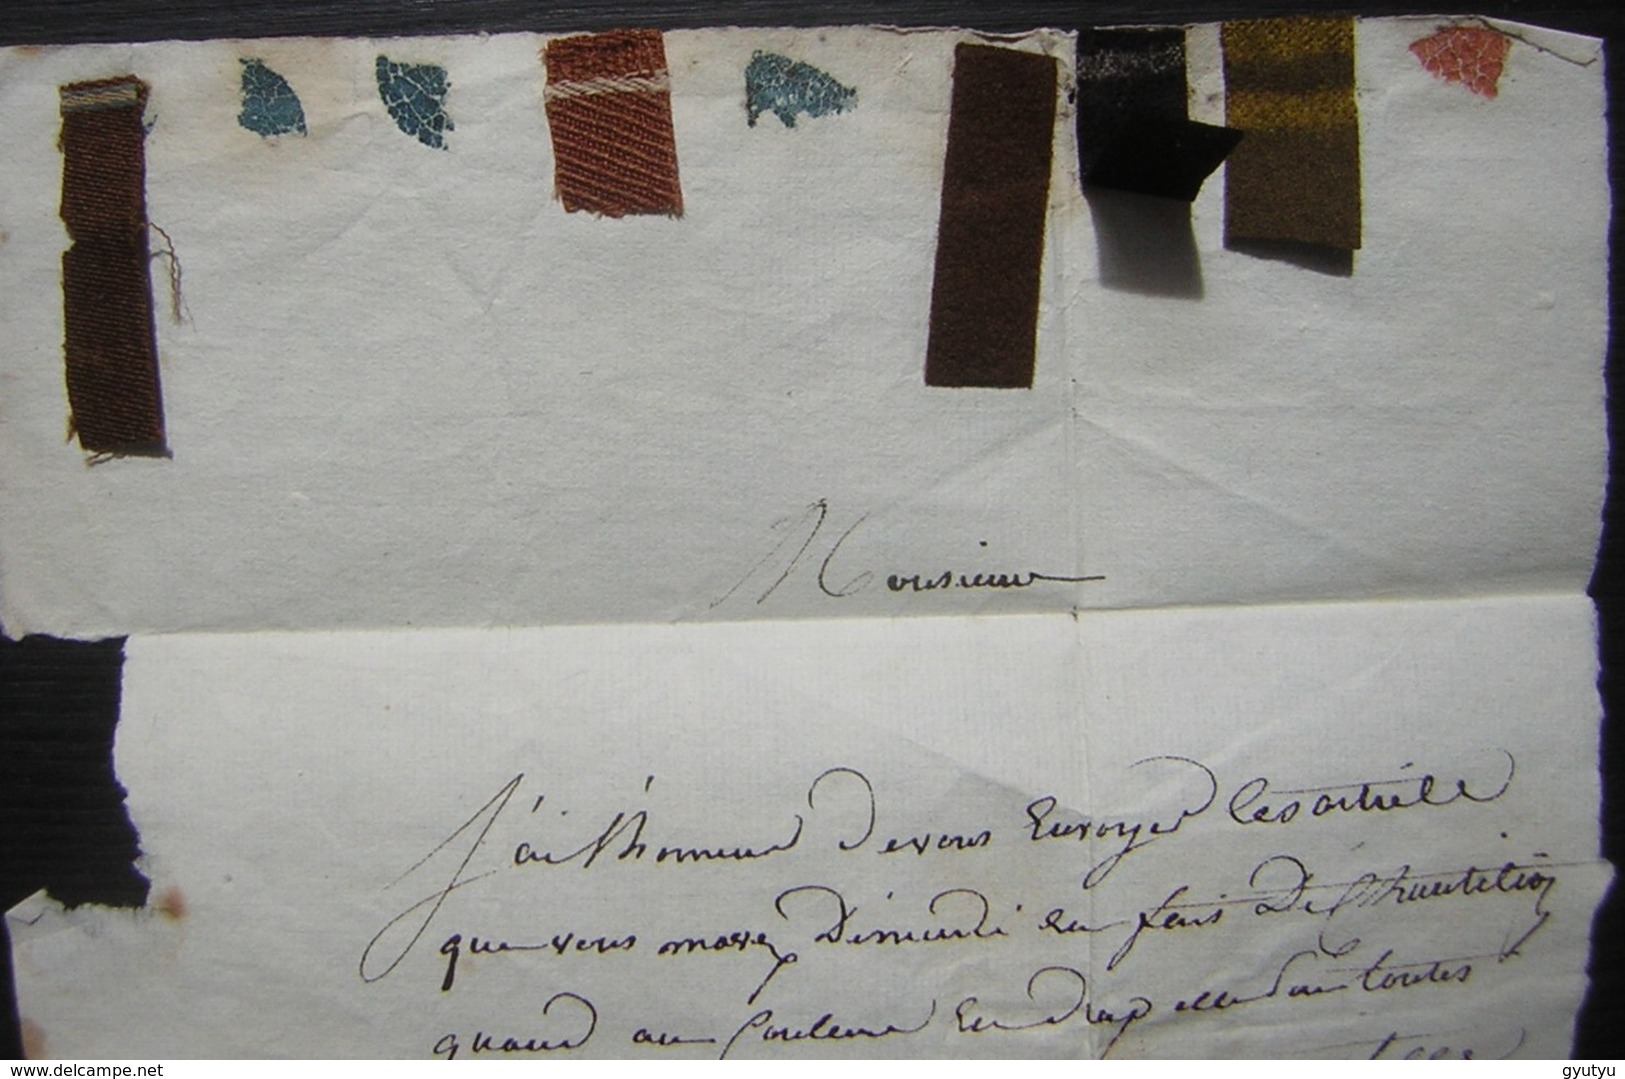 Monsieur
J'ai l'honneur De vous Envoyer les article
que vous mavez Démendé en fais De Chantilion
quand au Couleur En Drap elle son toutes
www.delcampe.net
gyutyu